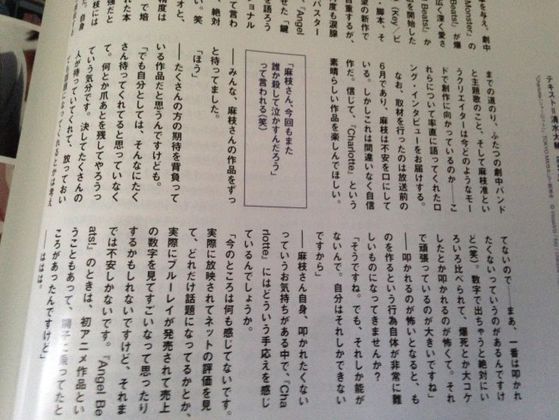 までの道のり、ふたつの劇中バンド
と主題歌のこと、そして麻枝准とい
うクリエイターは今どのようなモー
ドで創作に向かっているのか――こ
れらについて率直に語ってくれたロ
ング・インタビューをお届けする。
なお、取材を行ったのは放送前の
6月であり、麻枝は不安を口にして
いる。しかしこれは間違いなく自信
作だ。信じて、『Charlotte』という
素晴らしい作品を楽しんでほしい。
「麻枝さん、今回もまた
誰か殺して泣かすんだろう」
って言われる(笑)
――みんな、麻枝さんの作品をずっ
と待ってました。
「ほう」
――たくさんの方の期待を背負って
いる作品だと思うんですけども。
「でも自分としては、そんなにたく
さん待ってくれてると思っていなく
て。何とか爪あとを残してやろうっ
ていう気分です。決してたくさんの
人が待っていてくれて、放っておい
てないので――まあ、一番は叩かれ
たくないっていうのがあるんですけ
ど(笑)。数字で出ちゃうと絶対にい
ろいろ比べられて、爆死とか大コケ
したとか叩かれるのが怖くて。それ
で頑張っているのが大きいですね」
――叩かれるのが怖いとなると、も
のを作るという行為自体が非常に難
しいものになってきませんか?
「そうですね。でも、それしか能が
ないんで。自分はそれしかできない
ですから」
――麻枝さん自身、叩かれたくない
っていうお気持ちがある中で、『Cha
rlotte』にはどういう手応えを感じ
ているんでしょうか。
「今のところは何も感じてないです。
実際に放映されてネットの評価を見
て、どれだけ話題になってるかとか、
実際にブルーレイが発売されて売上
の数字を見てすごいなって思ったり
するかもしれないですけど、それま
では不安しかないです。『Angel Be
ats!』のときは、初アニメ作品とい
うこともあって、調子に乗ってたと
ころがあったんですけど」
――ははは。